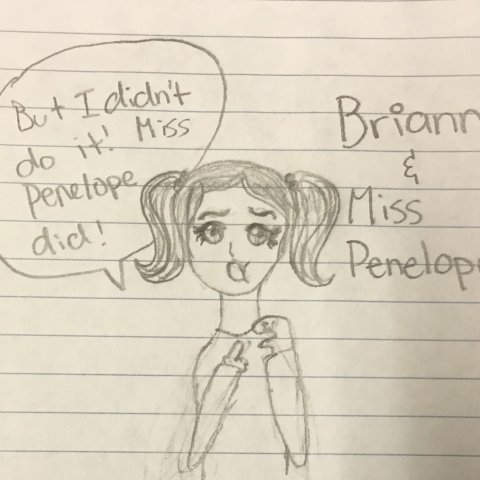 But I didn't
do it! Miss
Penelope
did!
Briann
&
Miss
Penelope